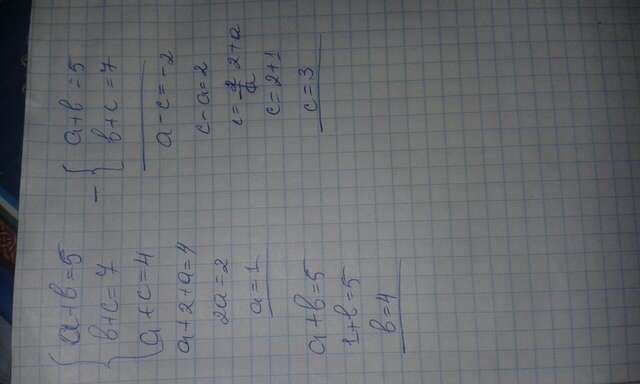 a+b=5
b+c=7
a+c=4
a+2+a=4
2a=2
a=1
a+b=5
1+b=5
b=4
- a+b=5
b+c=7
a-c=-2
c-a=2
c= 2+a
c=2+1
c=3